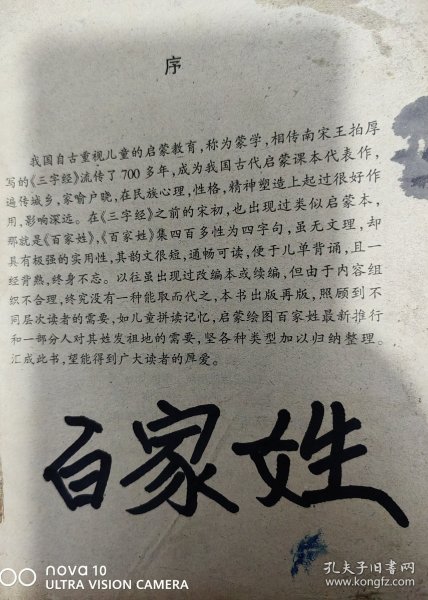 序
我国自古重视儿童的启蒙教育,称为蒙学,相传南宋王拍厚
写的《三字经》流传了700多年,成为我国古代启蒙课本代表作,
遍传城乡,家喻户晓,在民族心理,性格,精神塑造上起过很好作
用,影响深远。在《三字经》之前的宋初,也出现过类似启蒙本,
那就是《百家姓》,《百家姓》集四百多性为四字句,虽无文理,却
具有极强的实用性,其韵文很短,通畅可读,便于儿单背诵,且一
经背熟,终身不忘。以往虽出现过改编本或续编,但由于内容组
织不合理,终究没有一种能取而代之,本书出版再版,照顾到不
同层次读者的需要,如儿童拼读记忆,启蒙绘图百家姓最新推行
和一部分人对其姓发祖地的需要,坚各种类型加以归纳整理。
汇成此书,望能得到广大读者的厚爱。
百家姓
nova 10
ULTRA VISION CAMERA
孔夫子旧书网
www.kongfz.com